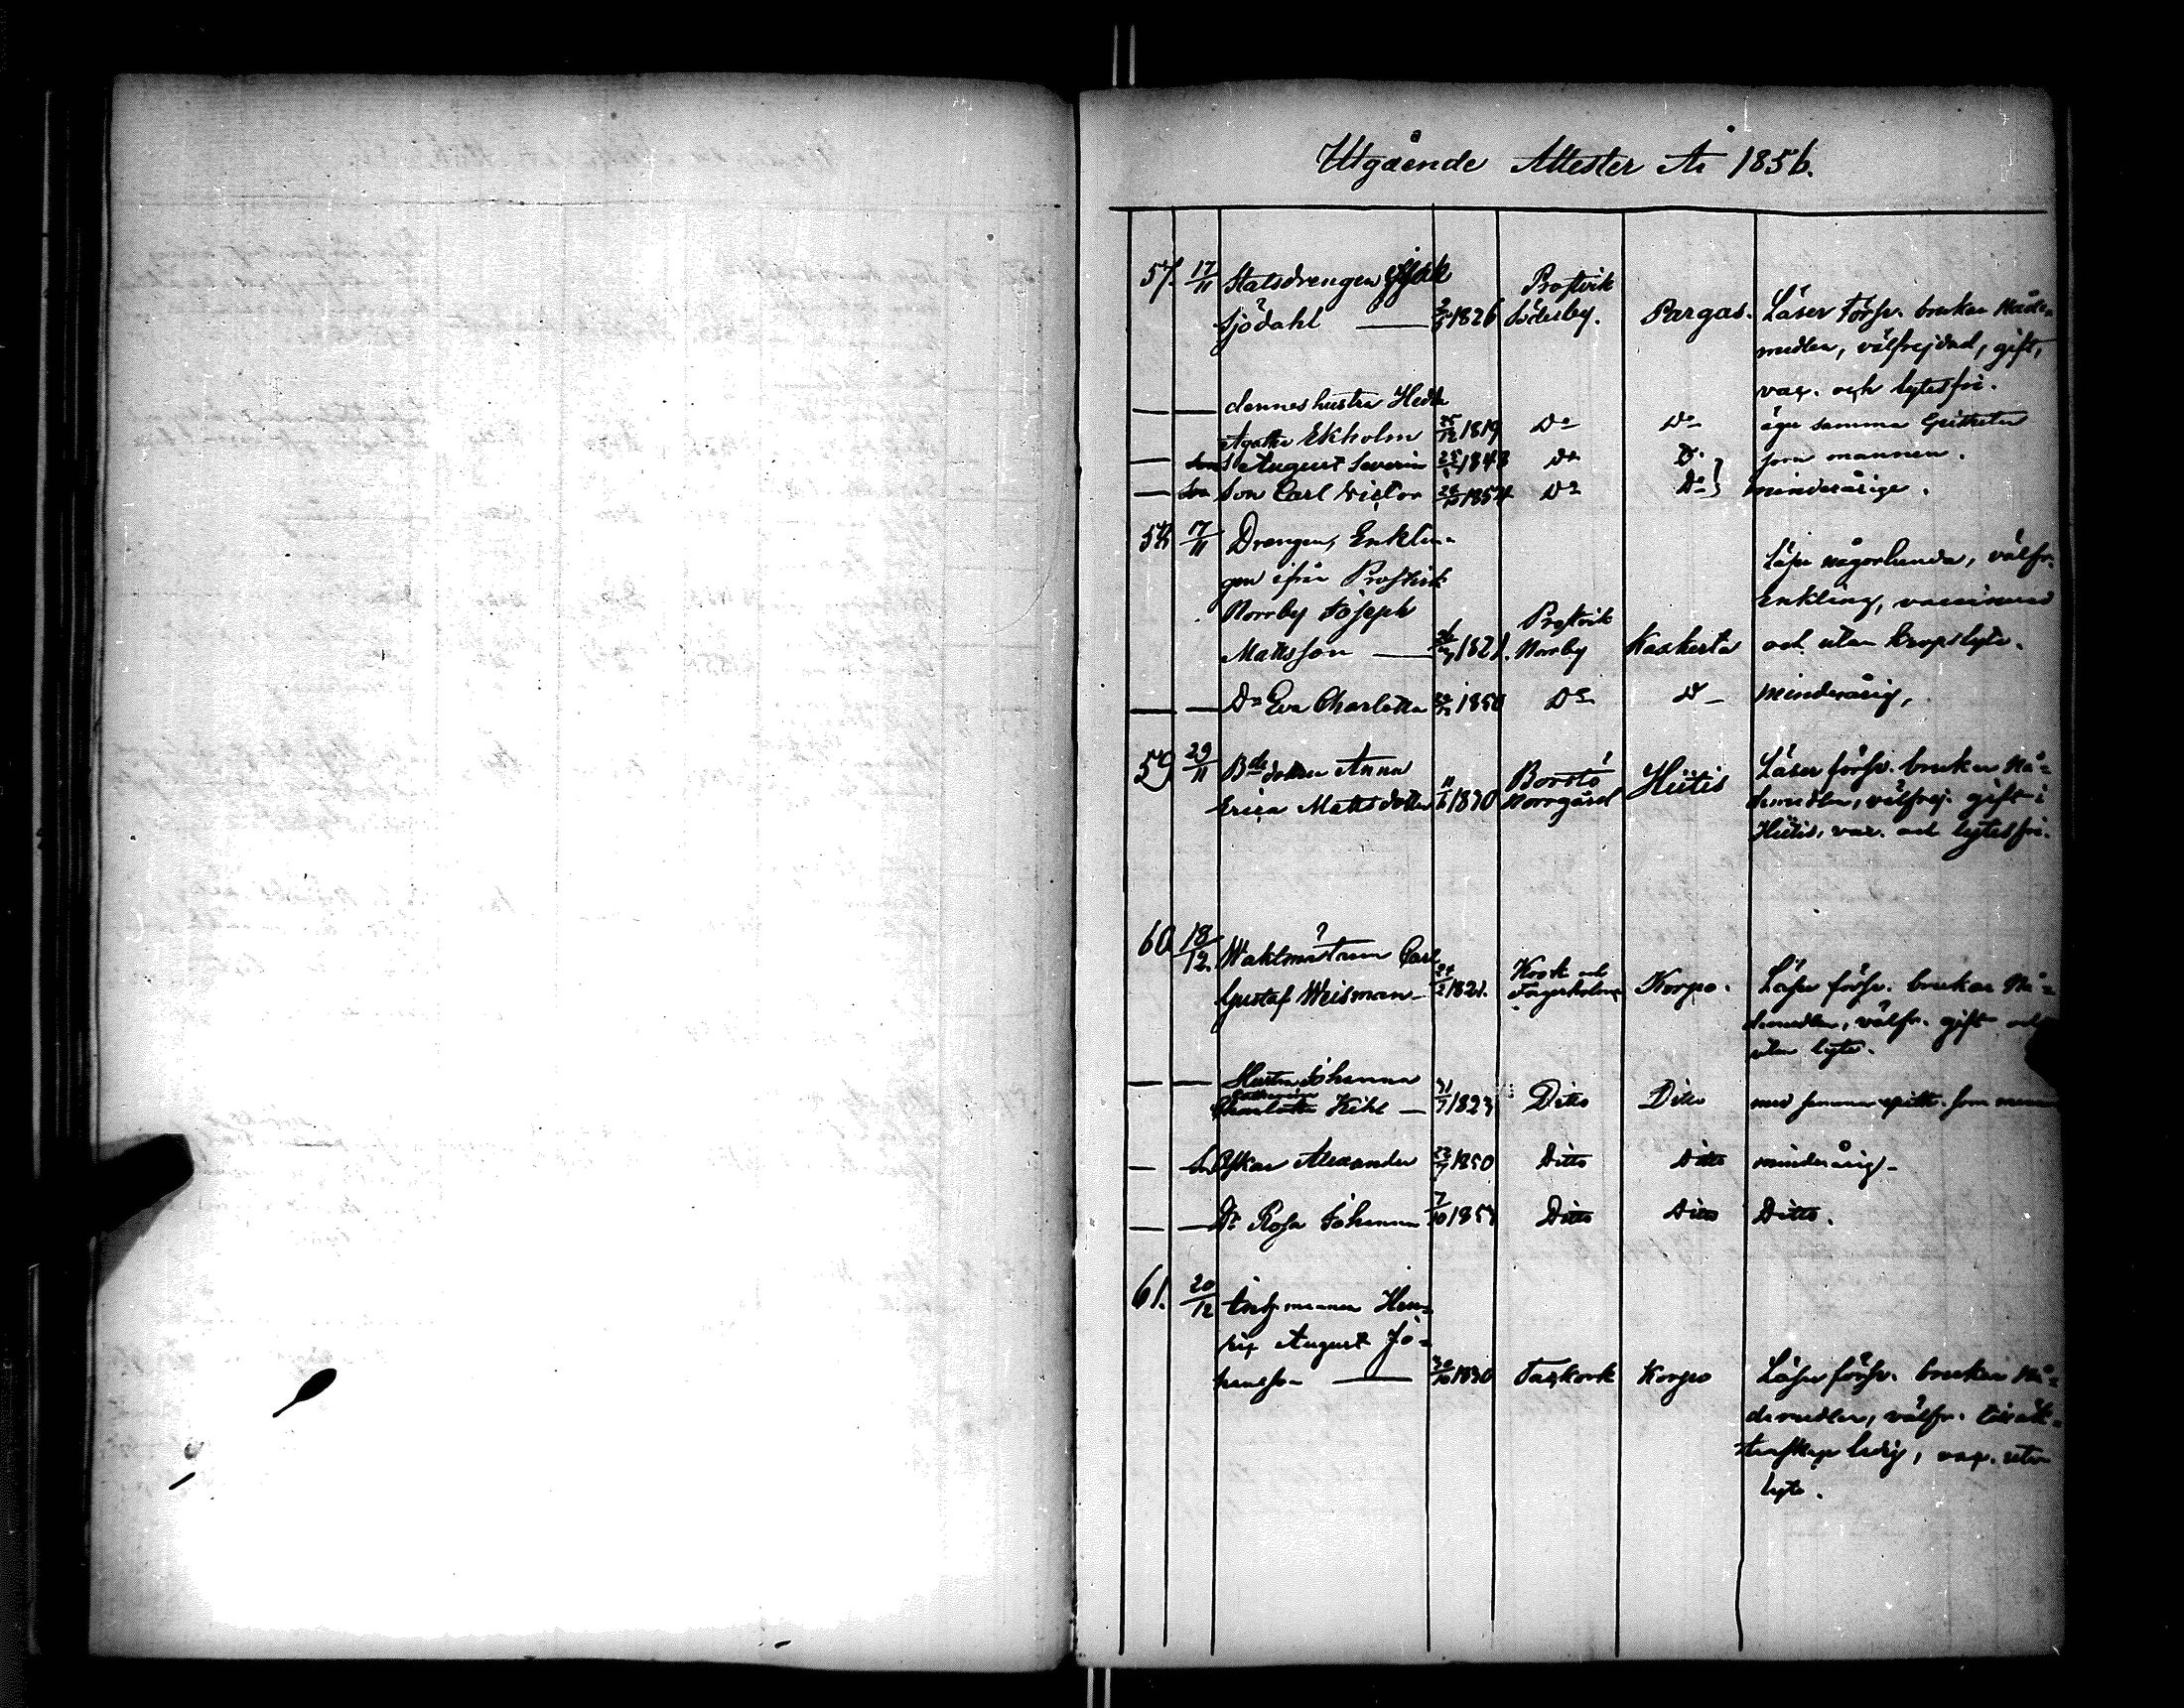 Utgående Attester År 1856.
57. 17/11 Statsdrengen
Sjödahl — 1826 Prostvik Söderby. Pargas. Läser försv. brukar Nåde-
medlen, välfrejdad, gift,
vac. och lytesfri.
— — dennes hustru Hedda
Agatha Ekholm 25/12 1819 Do Do äger samma Epitheter
— Son August Severin 1848 Do Do som mannen.
— Son Carl Victor 1854 Do Do minderårige.
58 17/11 Drengen, Enklin-
gen ifrån Prostvik
Norrby Joseph
Mattsson — 1821. Prostvik Norrby Kaxkerta Läser någorlunda, välfr.
Enkling, vaccinerad
och utan kropslyte.
— — Dr Eva Charlotta 1850 Do D minderårig,
59 29/11 Bde dottren Anna
Erica Mattsdotter 1830 Borstö Norrgård Hiitis Läser försv. brukar Nå-
demedlen, välfrej. gift i
Hiitis, vac. och lytesfri.
60 18/12. Waktmästaren Carl
Gustaf Weisman — 1821. Kork och Fagerholm Korpo. Läser försv. brukar Nå-
demedlen, välfr. gift och
utan lyte.
— — Hustru Johanna
Catharina
Charlotta Kihl — 1823 Ditto Ditto med samma epith. som mannen
— Son Oskar Alexander 1850 Ditto Ditto minderårig —
— — Dr Rosa Johanna 7/10 1854 Ditto Ditto Ditto.
61. 20/12 Hen-
ric August Jo-
hansson — 30/10 1830 Korpo Läser försv. brukar Nå-
demedlen, välfr. till äk-
tenskap ledig, vac. utan
lyte.